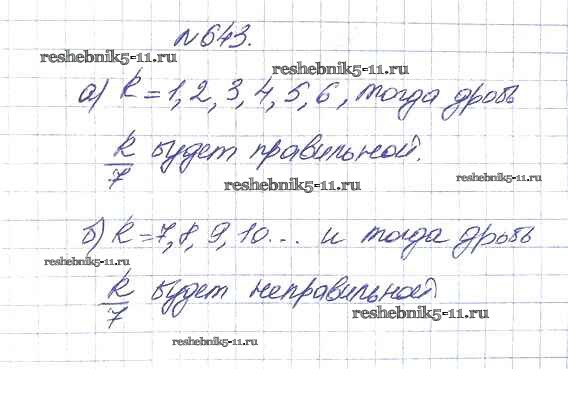 №643.
reshebnik5-11.ru
reshebnik5-11.ru
а) k = 1, 2, 3, 4, 5, 6, тогда дробь
k/7 будет правильной.
reshebnik5-11.ru
reshebnik5-11.ru
б) k = 7, 8, 9, 10... и тогда дробь
reshebnik5-11.ru
k/7 будет неправильной
reshebnik5-11.ru
reshebnik5-11.ru